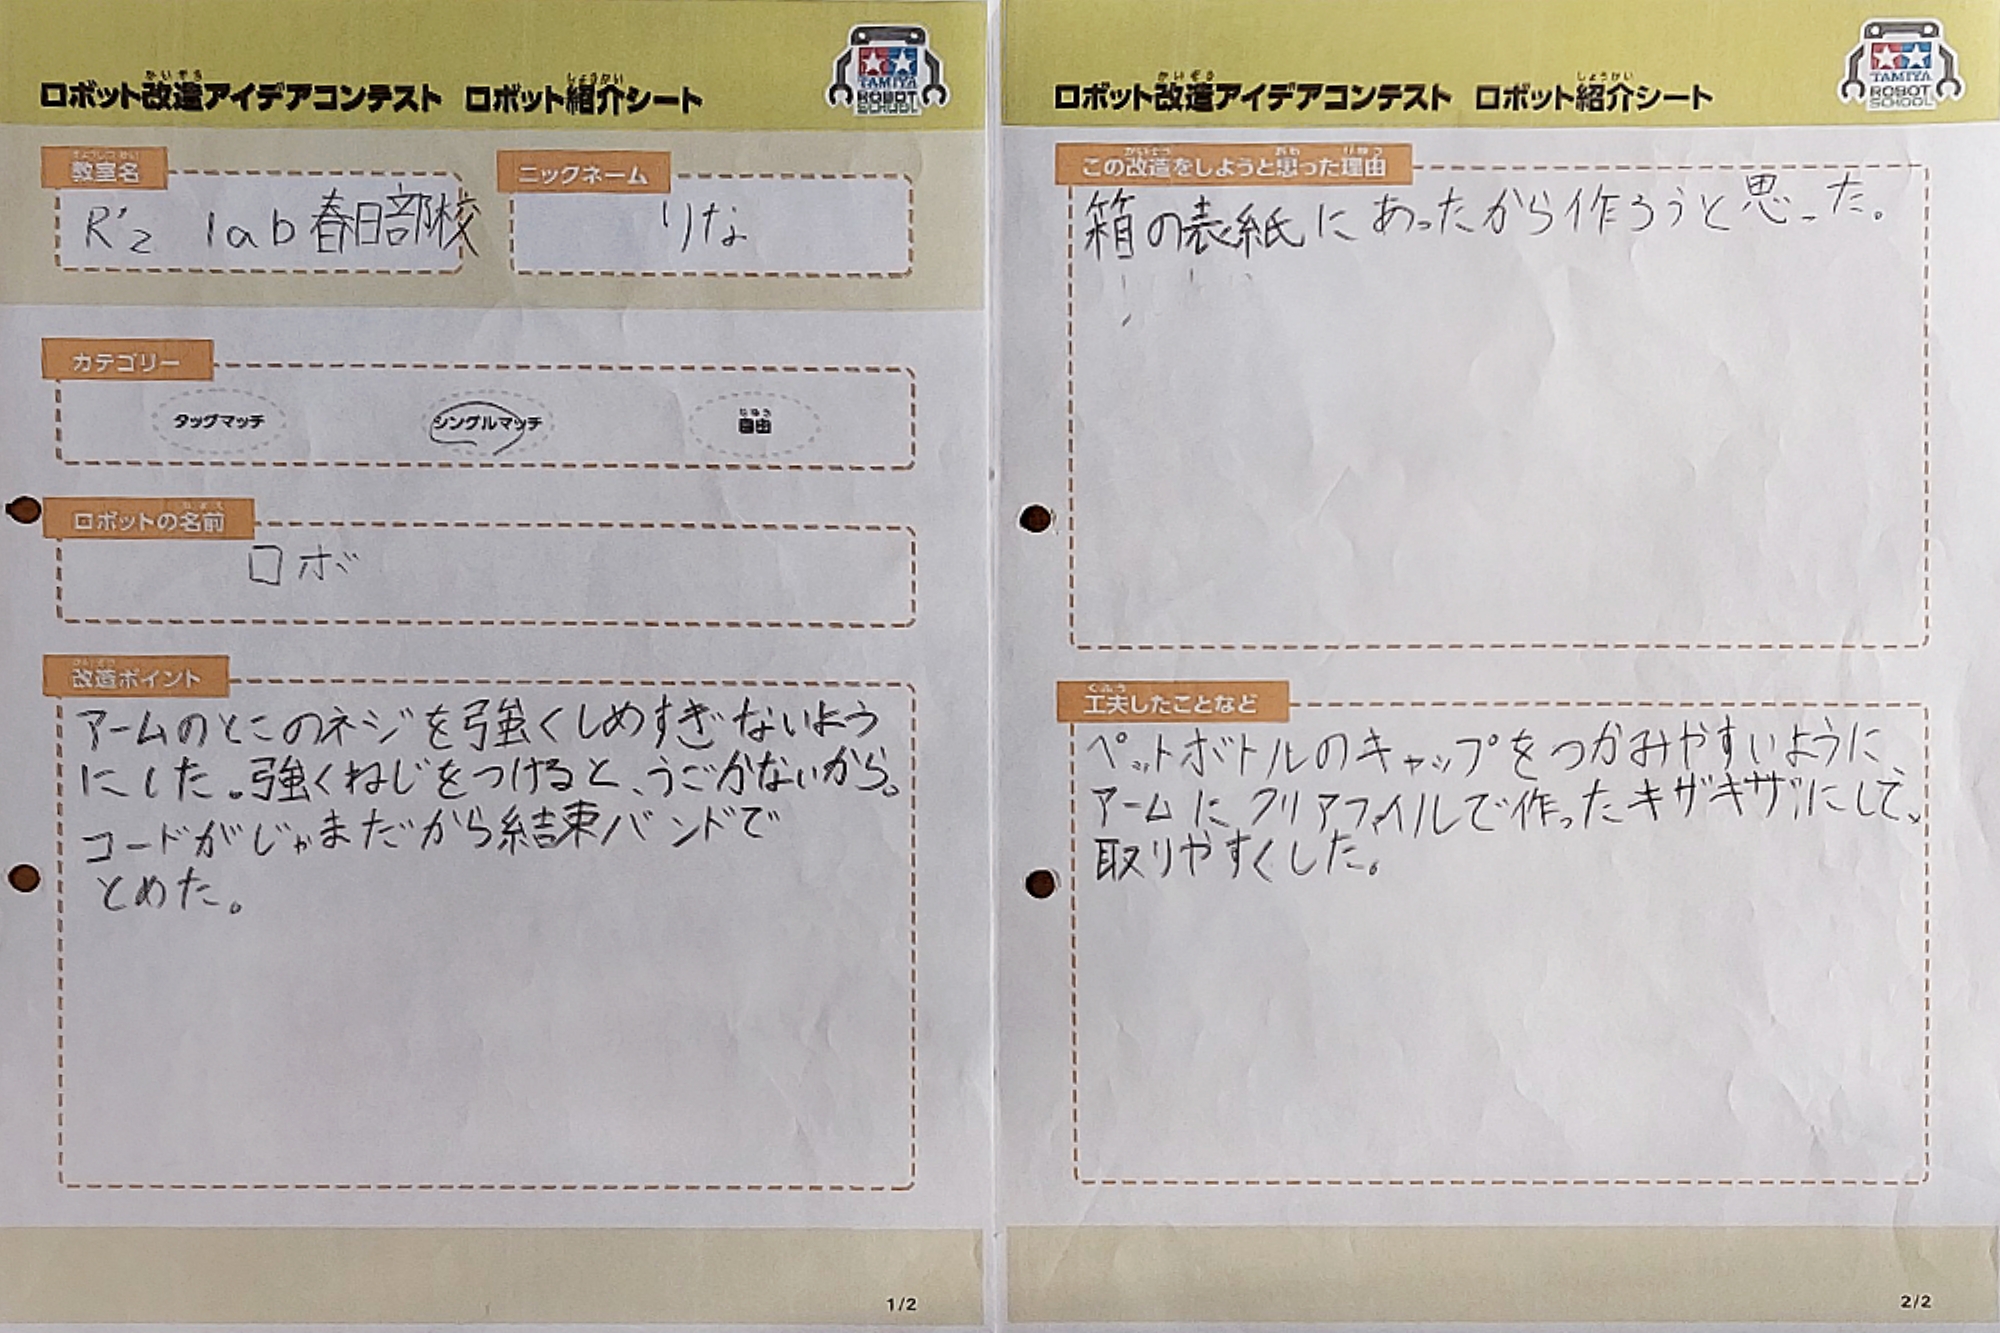 かいぞう
ロボット改造アイデアコンテスト しょうかい
ロボット紹介シート
TAMIYA
ROBOT
SCHOOL
教室名
R'z lab 春日部校
ニックネーム
りな
カテゴリー
タッグマッチ
シングルマッチ
じゆう
自由
ロボットの名前
ロボ
かいぞう
改造ポイント
アームのとこのネジを強くしめすぎないよう
にした。強くねじをつけると、うごかないから。
コードがじゃまだから結束バンドで
とめた。
1/2
かいぞう
ロボット改造アイデアコンテスト しょうかい
ロボット紹介シート
TAMIYA
ROBOT
SCHOOL
かいぞう おも りゆう
この改造をしようと思った理由
箱の表紙にあったから作ろうと思った。
くふう
工夫したことなど
ペットボトルのキャップをつかみやすいように、
アームにクリアファイルで作ったキザキザにして、
取りやすくした。
2/2